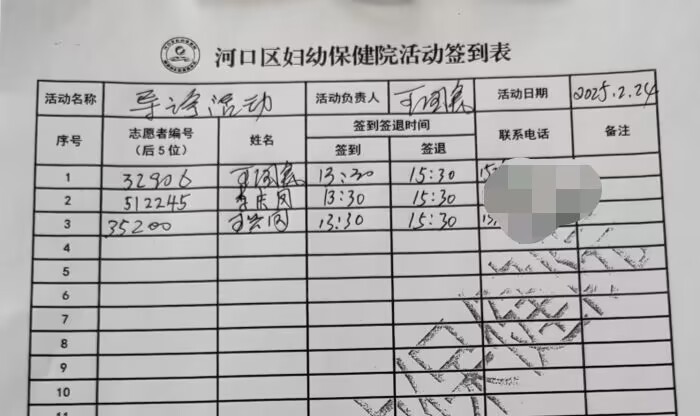 河口区妇幼保健院活动签到表
活动名称 导诊活动 活动负责人 活动日期 2025.2.24
序号 志愿者编号（后5位） 姓名 签到签退时间 联系电话 备注
签到 签退
1 32906 13:30 15:30
2 512245 13:30 15:30
3 35200 13:30 15:30
4
5
6
7
8
9
10